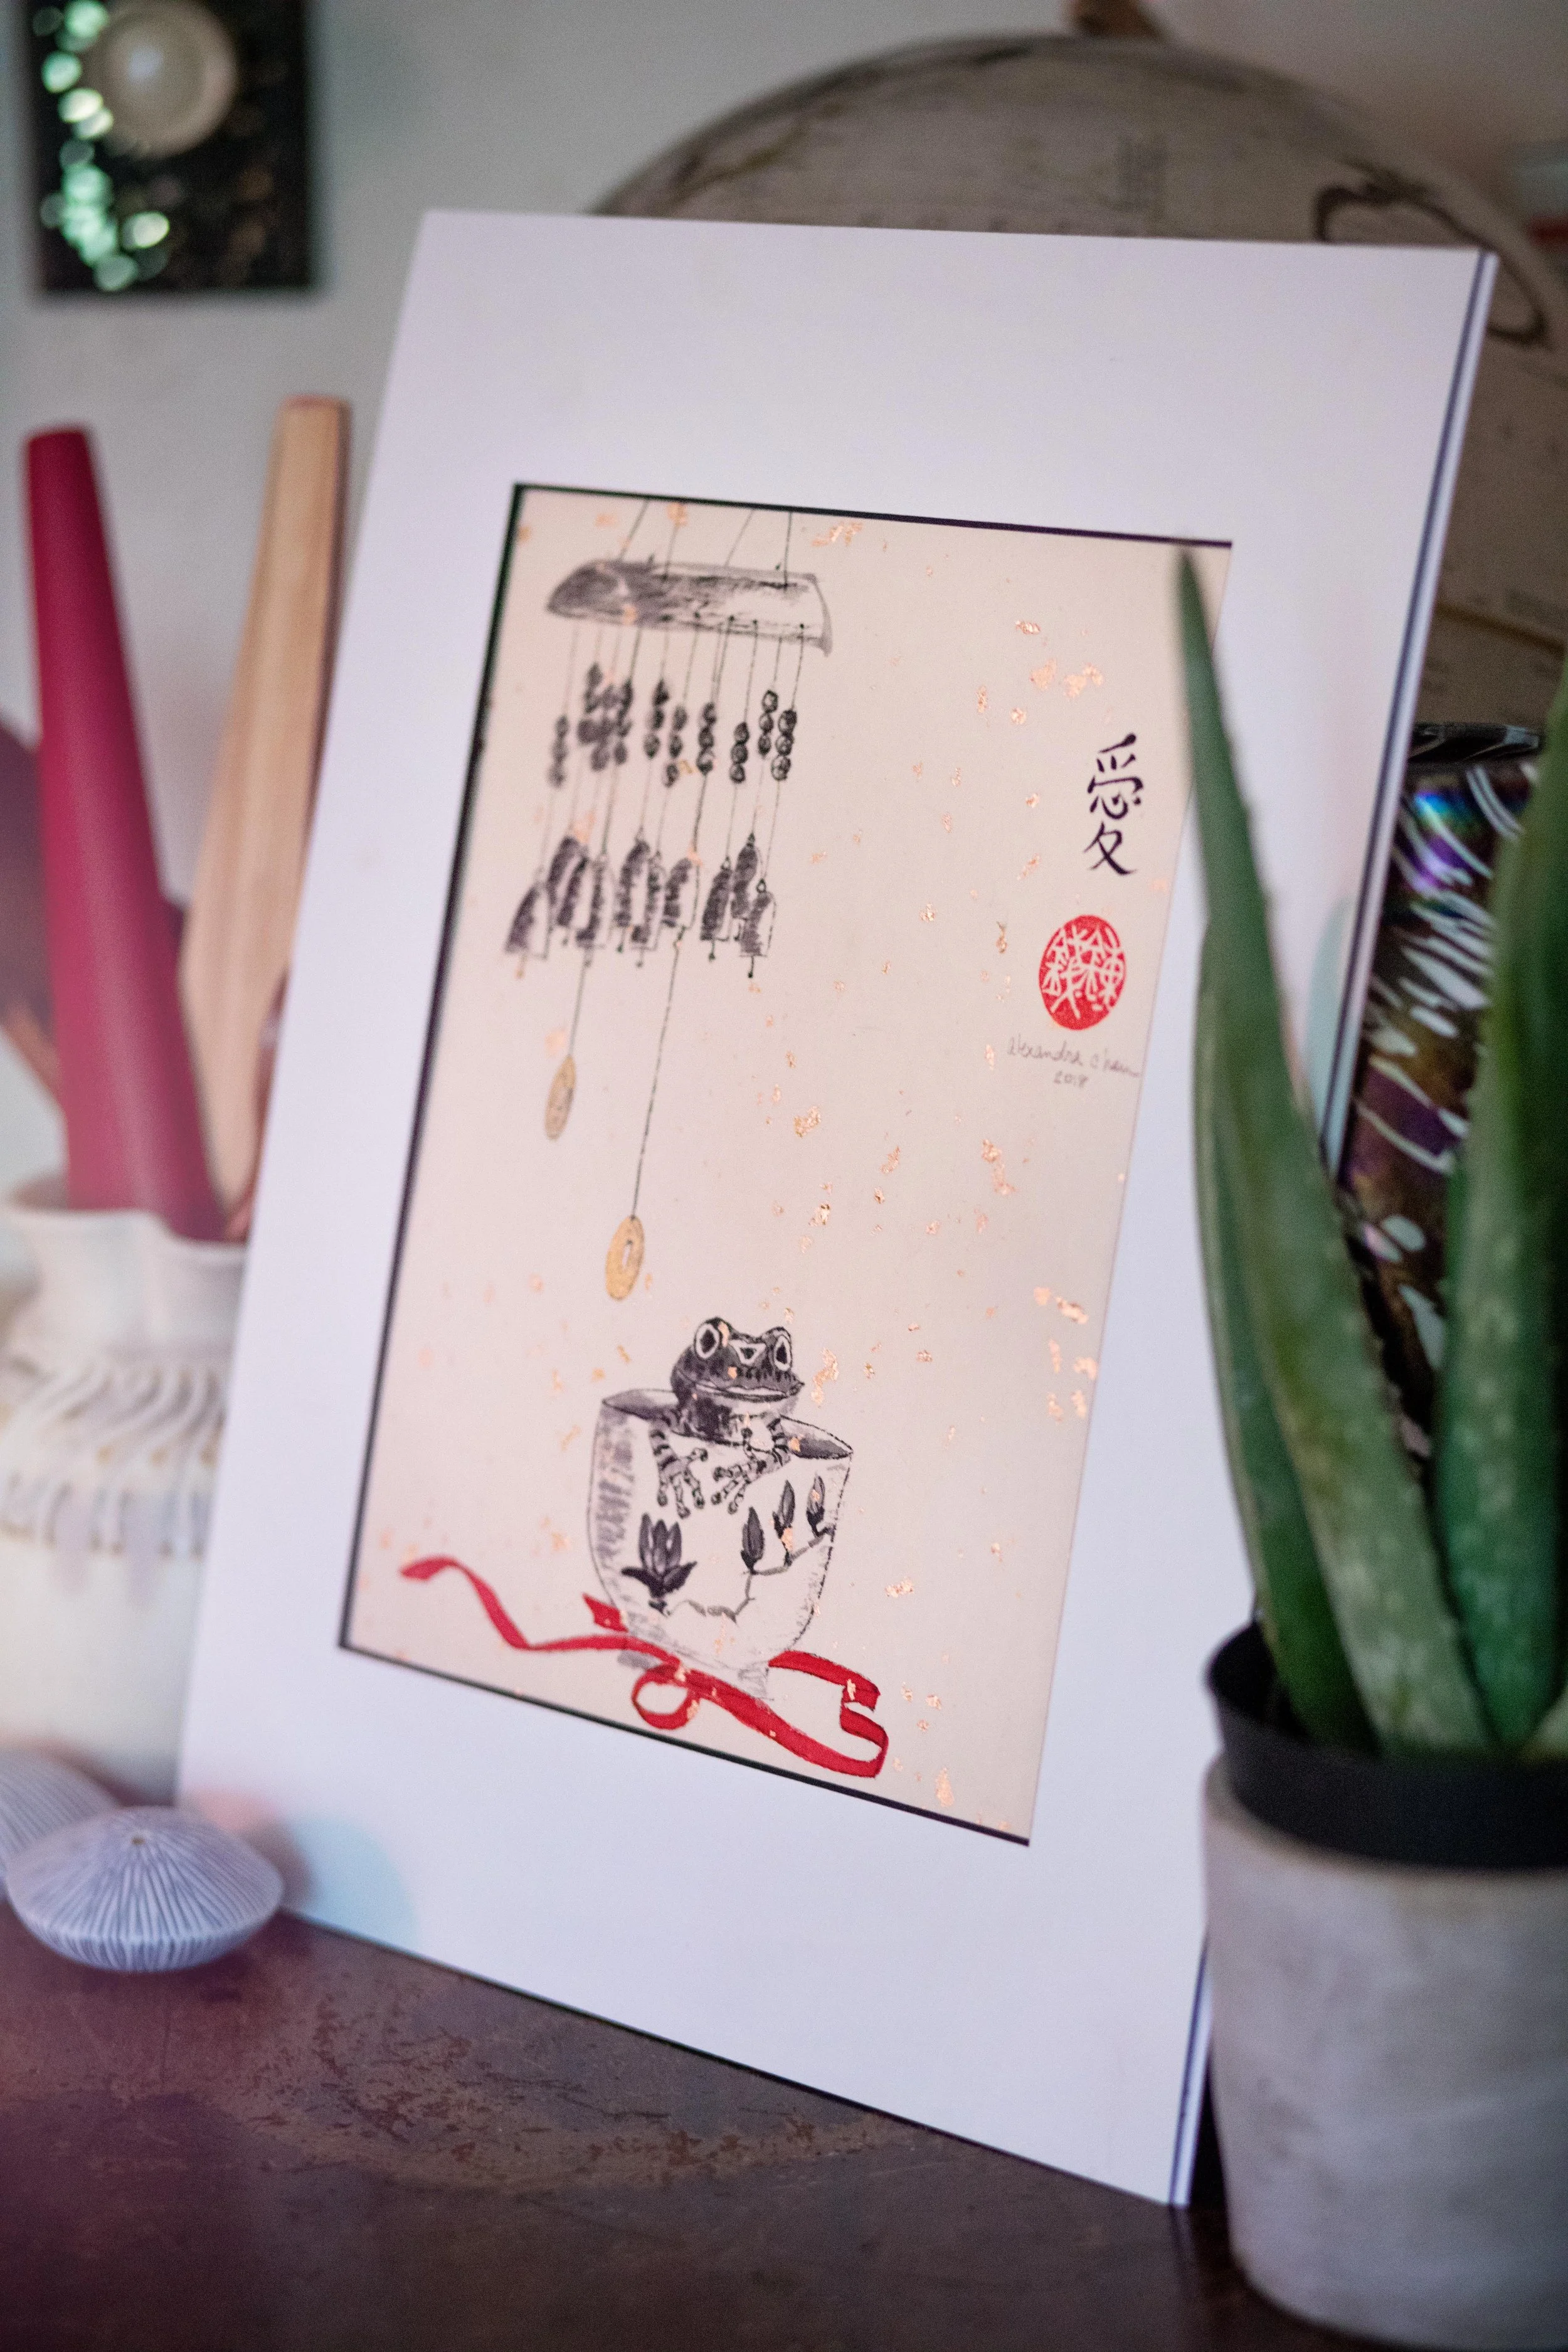 愛
Alexandra Chan
2018